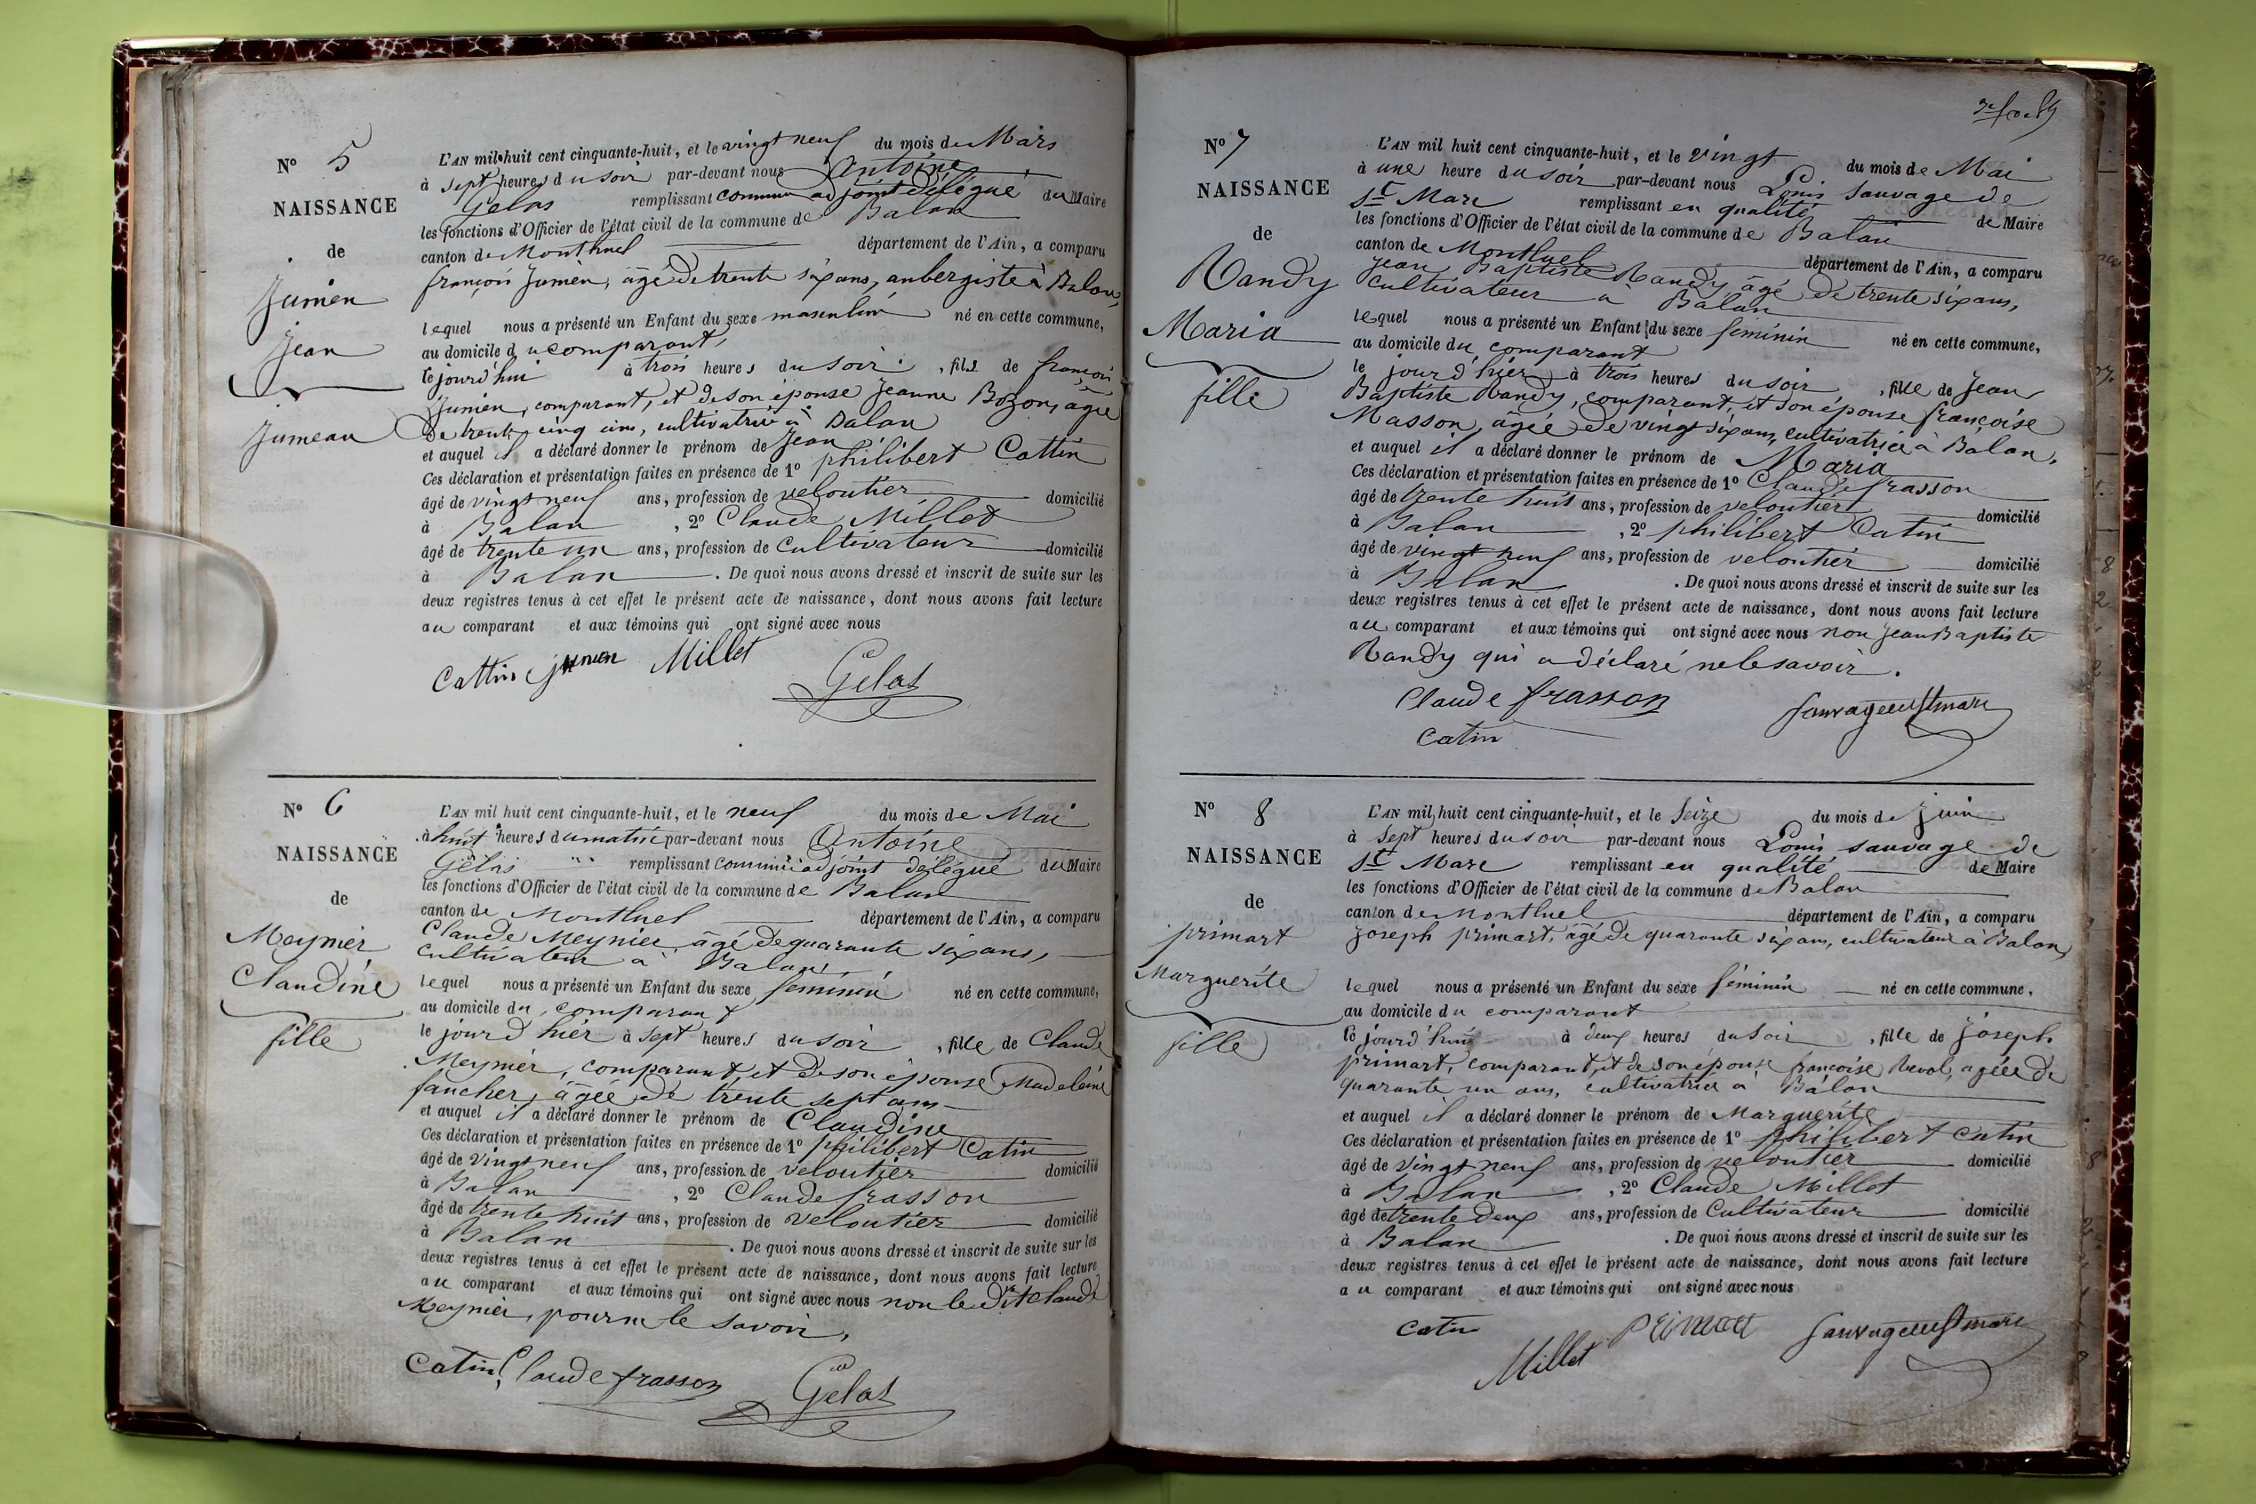 N° 5
NAISSANCE
de
Jumen
Jean
Jumeau
L'AN mil huit cent cinquante-huit, et le vingt neuf du mois de Mars
à sept heures du soir par-devant nous Antoine
Gelas remplissant comme adjoint délégué du Maire
les fonctions d'Officier de l'état civil de la commune de Balan
canton de Montluel département de l'Ain, a comparu
françois Jumen, âgé de trente six ans, aubergiste à Balan,
lequel nous a présenté un Enfant du sexe masculin né en cette commune,
au domicile du comparant,
le jourd'hui à trois heures du soir, fils de françois
Jumen, comparant, et de son épouse Jeanne Bozon, agée
de trente cinq ans, cultivatrice à Balan
et auquel il a déclaré donner le prénom de Jean
Ces déclaration et présentation faites en présence de 1° philibert Cattin
âgé de vingt neuf ans, profession de veloutier domicilié
à Balan, 2° Claude Millet
âgé de trente un ans, profession de Cultivateur domicilié
à Balan. De quoi nous avons dressé et inscrit de suite sur les
deux registres tenus à cet effet le présent acte de naissance, dont nous avons fait lecture
au comparant et aux témoins qui ont signé avec nous
Cattin Jumen Millet
Gelas
N° 6
NAISSANCE
de
Meynier
Claudine
fille
L'AN mil huit cent cinquante-huit, et le neuf du mois de Mai
à huit heures du matin par-devant nous Antoine
Gelas remplissant comme adjoint délégué du Maire
les fonctions d'Officier de l'état civil de la commune de Balan
canton de Montluel département de l'Ain, a comparu
Claude Meynier, âgé de quarante six ans,
cultivateur à Balan,
lequel nous a présenté un Enfant du sexe féminin né en cette commune,
au domicile du comparant
le jour d'hier à sept heures du soir, fille de Claude
Meynier, comparant et de son épouse Madeleine
faucher, âgée de trente sept ans
et auquel il a déclaré donner le prénom de Claudine
Ces déclaration et présentation faites en présence de 1° philibert Catin
âgé de vingt neuf ans, profession de veloutier domicilié
à Balan, 2° Claude frasson
âgé de trente huit ans, profession de veloutier domicilié
à Balan. De quoi nous avons dressé et inscrit de suite sur les
deux registres tenus à cet effet le présent acte de naissance, dont nous avons fait lecture
au comparant et aux témoins qui ont signé avec nous non le dit Claude
Meynier, pour ne le savoir,
Catin Claude frasson
Gelas
N° 7
NAISSANCE
de
Randy
Maria
fille
L'AN mil huit cent cinquante-huit, et le vingt du mois de Mai
à une heure du soir par-devant nous Louis Sauvage de
St Marc remplissant en qualité de Maire
les fonctions d'Officier de l'état civil de la commune de Balan
canton de Montluel département de l'Ain, a comparu
Jean Baptiste Randy, âgé de trente six ans,
cultivateur à Balan
lequel nous a présenté un Enfant du sexe féminin né en cette commune,
au domicile du comparant
le jour d'hier à trois heures du soir, fille de Jean
Baptiste Randy, comparant, et son épouse françoise
Masson, âgée de vingt six ans, cultivatrice à Balan,
et auquel il a déclaré donner le prénom de Maria
Ces déclaration et présentation faites en présence de 1° Claude frasson
âgé de trente huit ans, profession de veloutier domicilié
à Balan, 2° philibert Catin
âgé de vingt neuf ans, profession de veloutier domicilié
à Balan. De quoi nous avons dressé et inscrit de suite sur les
deux registres tenus à cet effet le présent acte de naissance, dont nous avons fait lecture
au comparant et aux témoins qui ont signé avec nous non Jean Baptiste
Randy qui a déclaré ne le savoir.
Claude frasson Sauvage de St marc
Catin
N° 8
NAISSANCE
de
primart
Marguerite
fille
L'AN mil huit cent cinquante-huit, et le Seize du mois de juin
à sept heures du soir par-devant nous Louis Sauvage de
St Marc remplissant en qualité de Maire
les fonctions d'Officier de l'état civil de la commune de Balan
canton de Montluel département de l'Ain, a comparu
Joseph primart, âgé de quarante six ans, cultivateur à Balan,
lequel nous a présenté un Enfant du sexe féminin né en cette commune,
au domicile du comparant
le jourd'hui à deux heures du Soir, fille de joseph
primart, comparant, et de son épouse françoise Revol, agée de
quarante un ans, cultivatrice à Balan
et auquel il a déclaré donner le prénom de Marguerite
Ces déclaration et présentation faites en présence de 1° philibert Catin
âgé de vingt neuf ans, profession de veloutier domicilié
à Balan, 2° Claude Millet
âgé de trente deux ans, profession de Cultivateur domicilié
à Balan. De quoi nous avons dressé et inscrit de suite sur les
deux registres tenus à cet effet le présent acte de naissance, dont nous avons fait lecture
au comparant et aux témoins qui ont signé avec nous
Catin Primart Sauvage de St marc
Millet